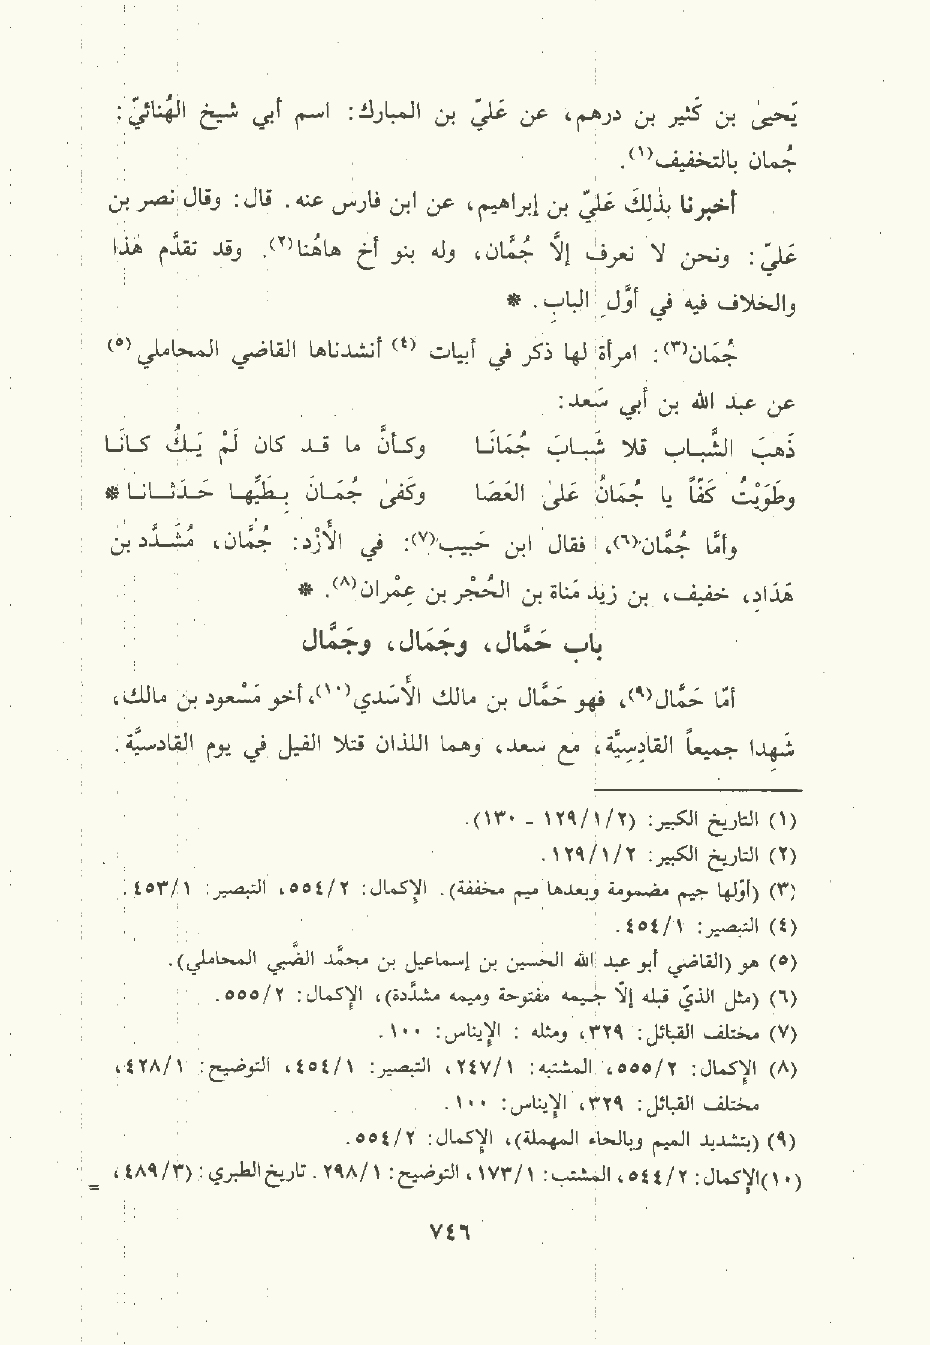 يَحيىٰ بن كَثير بن درهم، عن عَليّ بن المبارك: اسم أبي شيخ الهُنائيّ:
جُمان بالتخفيف(١).
أخبرنا بذلِكَ عَليّ بن إبراهيم، عن ابن فارس عنه. قال: وقال نصر بن
عَليّ: ونحن لا نعرف إلاّ جُمَّان، وله بنو أخ هاهُنا(٢). وقد تقدَّم هَذا
والخلاف فيه في أوَّلِ البابِ. *
جُمَان(٣): امرأة لها ذكر في أبيات (٤) أنشدناها القاضي المحاملي(٥)
عن عبد الله بن أبي سَعد:
ذَهبَ الشَّبـاب فلا شَبـابَ جُمَانَـا وكـأنَّ ما قـد كان لَمْ يَـكُ كـانَـا
وطَوَيْتُ كَفّاً يا جُمَانُ عَلىٰ العَصَا وكَفىٰ جُمَـانُ بِـطَيِّهـا حَـدَثـانـا *
وأمَّا جُمَّان(٦)، فقال ابن حَبيب(٧): في الأزْد: جُمَّان، مُشَدَّد بن
هَدَادِ، خفيف، بن زيد مَناة بن الحُجْر بن عِمْران(٨). *
باب حَمَّال، وجَمَال، وجَمَّال
أمّا حَمَّال(٩)، فهو حَمَّال بن مالك الأسَدي(١٠)، أخو مَسْعود بن مالك،
شَهِدا جميعاً القادِسِيَّة، مع سعد، وهما اللذان قتلا الفيل في يوم القادسيَّة.
(١) التاريخ الكبير: (٢/١/١٢٩ - ١٣٠).
(٢) التاريخ الكبير: ٢/١/١٢٩.
(٣) (أوّلها جيم مضمومة وبعدها ميم مخففة). الإكمال: ٢/٥٥٤، التبصير: ١/٤٥٣.
(٤) التبصير: ١/٤٥٤.
(٥) هو (القاضي أبو عبد الله الحسين بن إسماعيل بن محمَّد الضَّبي المحاملي).
(٦) (مثل الذيّ قبله إلاّ جيمه مفتوحة وميمه مشدَّدة)، الإكمال: ٢/٥٥٥.
(٧) مختلف القبائل: ٣٢٩، ومثله : الإيناس: ١٠٠.
(٨) الإكمال: ٢/٥٥٥، المشتبه: ١/٢٤٧، التبصير: ١/٤٥٤، التوضيح: ١/٤٢٨،
مختلف القبائل: ٣٢٩، الإيناس: ١٠٠.
(٩) (بتشديد الميم وبالحاء المهملة)، الإكمال: ٢/٥٥٤.
(١٠)الإكمال: ٢/٥٤٤، المشتب: ١/١٧٣، التوضيح: ١/٢٩٨. تاريخ الطبري: (٣/٤٨٩،
=
٧٤٦